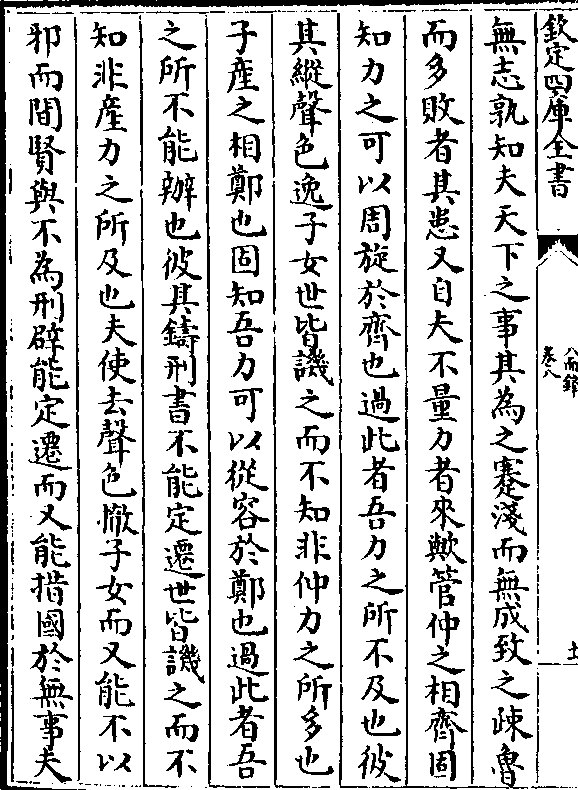 欽定四庫全書
卷八
無志孰知夫天下之事其為之蹇淺而無成致之疎魯
而多敗者其患又自夫不量力者來歟管仲之相齊固
知力之可以周旋於齊也過此者吾力之所不及也彼
其縱聲色逸子女世皆譏之而不知非仲力之所多也
子產之相鄭也固知吾力可以從容於鄭也過此者吾
之所不能辦也彼其鑄刑書不能定遷世皆譏之而不
知非產力之所及也夫使去聲色㒑子女而又能不以
邪而間賢與不為刑辟能定遷而又能措國於無事夫